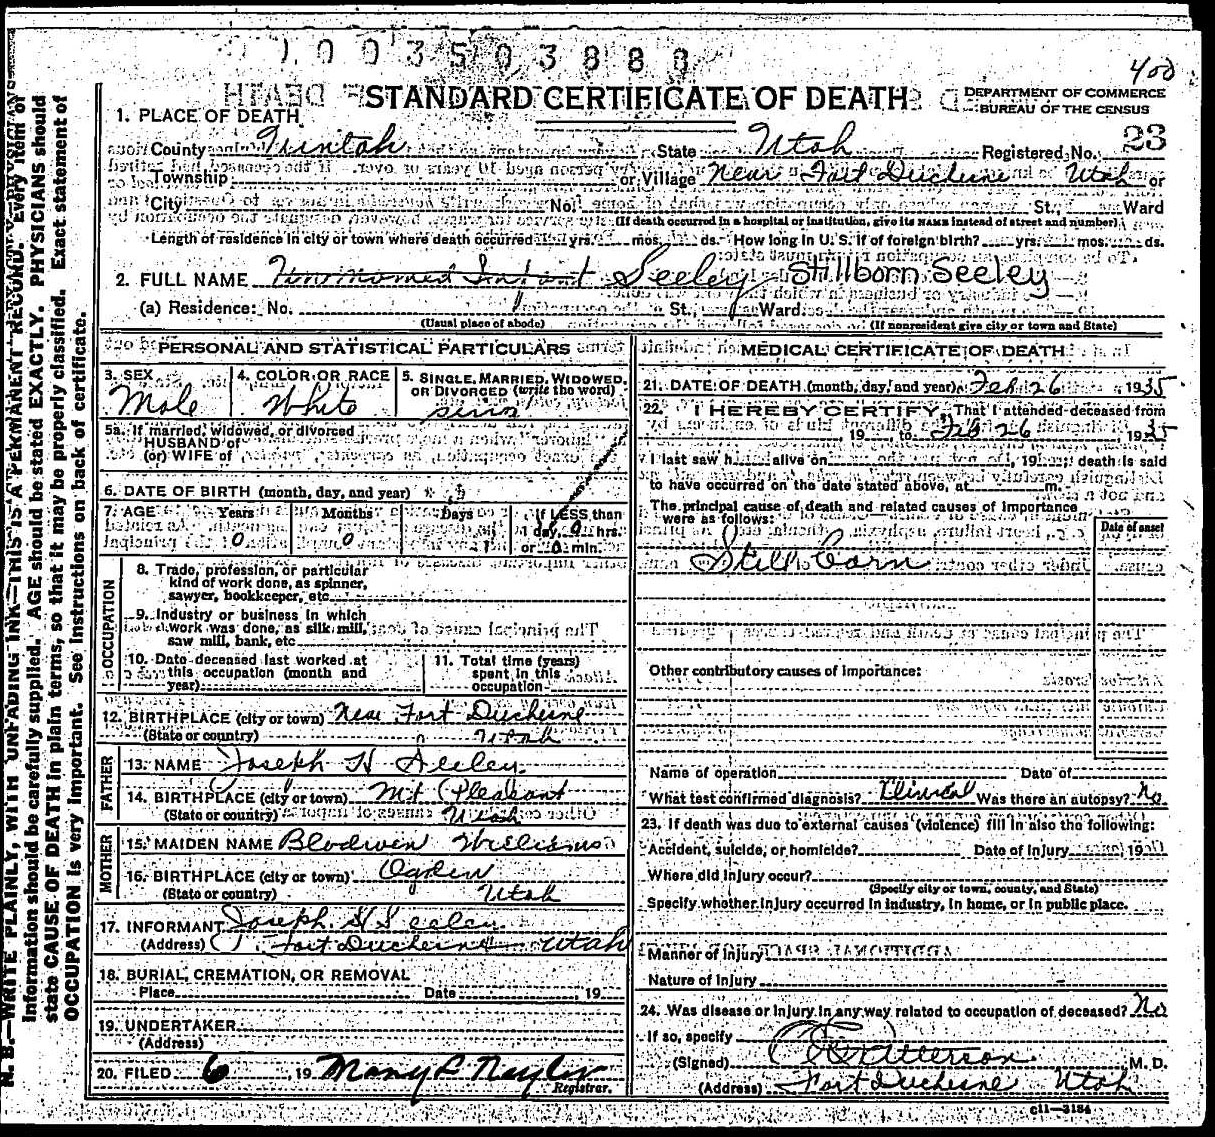 1003503888
400
STANDARD CERTIFICATE OF DEATH
DEPARTMENT OF COMMERCE
BUREAU OF THE CENSUS
1. PLACE OF DEATH
County Uintah State Utah Registered No. 23
Township or Village Near Fort Duchesne Utah or
City No. St., Ward
(If death occurred in a hospital or institution, give its NAME instead of street and number)
Length of residence in city or town where death occurred yrs. mos. ds. How long in U. S. if of foreign birth? yrs. mos. ds.
2. FULL NAME Unnamed Infant Seeley Stillborn Seeley
(a) Residence: No. St., Ward.
(Usual place of abode) (If nonresident give city or town and State)
PERSONAL AND STATISTICAL PARTICULARS
3. SEX Male
4. COLOR OR RACE White
5. SINGLE, MARRIED, WIDOWED, OR DIVORCED (write the word)
5a. If married, widowed, or divorced
HUSBAND of
(or) WIFE of
6. DATE OF BIRTH (month, day, and year)
7. AGE Years 0 Months 0 Days If LESS than
day, 0 hrs.
or 0 min.
OCCUPATION
8. Trade, profession, or particular
kind of work done, as spinner,
sawyer, bookkeeper, etc.
9. Industry or business in which
work was done, as silk mill,
saw mill, bank, etc.
10. Date deceased last worked at
this occupation (month and
year)
11. Total time (years)
spent in this
occupation
12. BIRTHPLACE (city or town) Near Fort Duchesne
(State or country) Utah
FATHER
13. NAME Joseph H Seeley
14. BIRTHPLACE (city or town) Mt Pleasant
(State or country) Utah
MOTHER
15. MAIDEN NAME Blodwen Williams
16. BIRTHPLACE (city or town) Ogden
(State or country) Utah
17. INFORMANT Joseph H Seeley
(Address) Fort Duchesne Utah
18. BURIAL, CREMATION, OR REMOVAL
Place Date , 19
19. UNDERTAKER
(Address)
20. FILED 6, 19 Mary L Naylor
Registrar.
MEDICAL CERTIFICATE OF DEATH
21. DATE OF DEATH (month, day, and year) Feb 26 1935
22. I HEREBY CERTIFY, That I attended deceased from
, 19 to Feb 26, 1935
I last saw h alive on , 19 ; death is said
to have occurred on the date stated above, at m.
The principal cause of death and related causes of importance
were as follows:
Date of onset
Still born
Other contributory causes of importance:
Name of operation Date of
What test confirmed diagnosis? Clinical Was there an autopsy? No
23. If death was due to external causes (violence) fill in also the following:
Accident, suicide, or homicide? Date of injury 19
Where did injury occur?
(Specify city or town, county, and State)
Specify whether injury occurred in industry, in home, or in public place.
Manner of injury
Nature of injury
24. Was disease or injury in any way related to occupation of deceased? No
If so, specify
(Signed) Patterson M. D.
(Address) Fort Duchesne Utah
c11-3184
N. B.—WRITE PLAINLY, WITH UNFADING INK—THIS IS A PERMANENT RECORD. Every item of
information should be carefully supplied. AGE should be stated EXACTLY. PHYSICIANS should
state CAUSE OF DEATH in plain terms, so that it may be properly classified. Exact statement of
OCCUPATION is very important. See instructions on back of certificate.